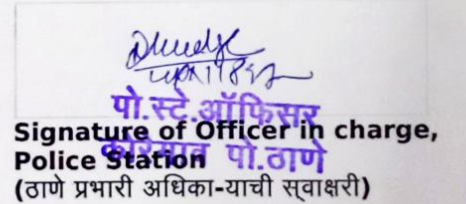 पो.स्टे.ऑफिसर
Signature of Officer in charge,
Police Station
पो.ठाणे
(ठाणे प्रभारी अधिका-याची स्वाक्षरी)